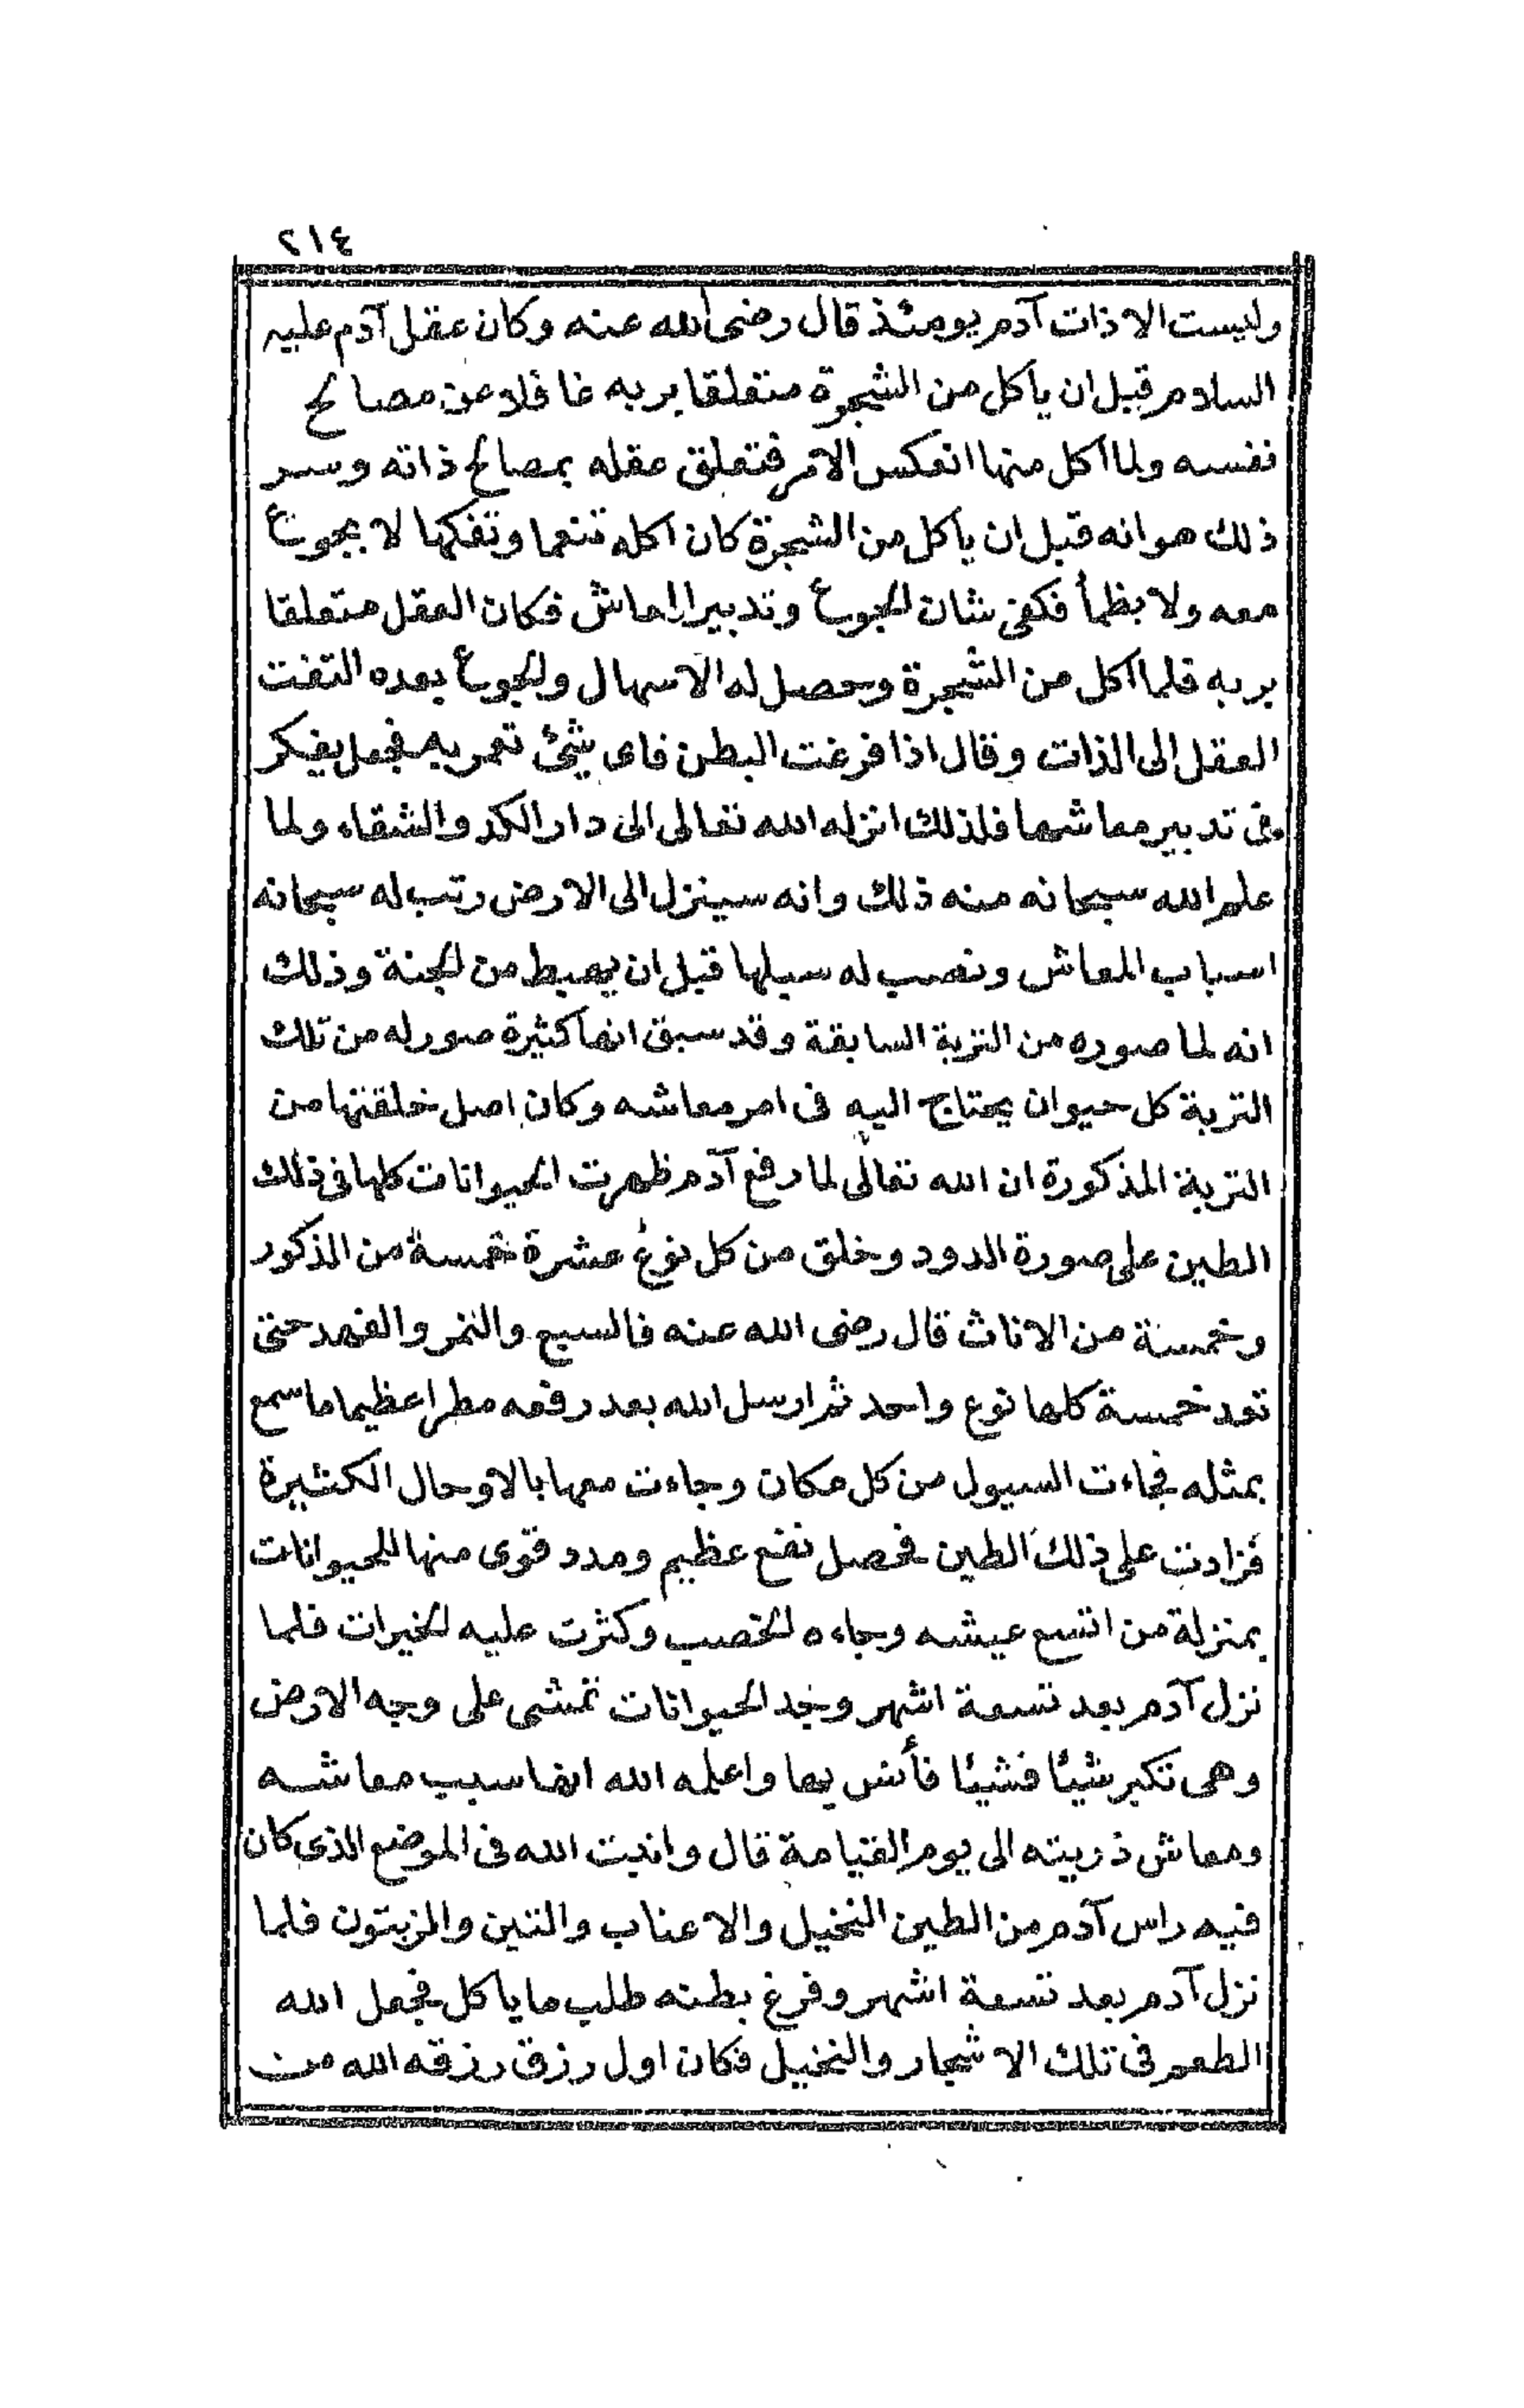 ٢١٤
وليست الا ذات آدم يومئذ قال رضى الله عنه وكان عقل آدم عليه
السلام قبل ان ياكل من الشجرة متعلقا بربه غافلا عن مصالح
نفسه ولما اكل منها انعكس الامر فتعلق عقله بمصالح ذاته وسر
ذلك هو انه قبل ان ياكل من الشجرة كان اكله تنعما وتفكها لا يجوع
معه ولا يظمأ فكفى شان الجوع وتدبير المعاش فكان العقل متعلقا
بربه فلما اكل من الشجرة وحصل له الاسهال والجوع بعده التفت
العقل الى الذات وقال اذا فرغت البطن فاى شئ تعمر به فجعل يفكر
فى تدبير معاشها فلذلك انزله الله تعالى الى دار الكد والشقاء ولما
علم الله سبحانه منه ذلك وانه سينزل الى الارض رتب له سبحانه
اسباب المعاش ونصب له سبلها قبل ان يهبط من الجنة وذلك
انه لما صوره من التربة السابقة وقد سبق انها كثيرة صور له من تلك
التربة كل حيوان يحتاج اليه فى امر معاشه وكان اصل خلقتها من
التربة المذكورة ان الله تعالى لما رفع آدم ظهرت الحيوانات كلها فى ذلك
الطين على صورة الدود وخلق من كل نوع عشرة خمسة من الذكور
وخمسة من الاناث قال رضى الله عنه فالسبع والنمر والفهد حتى
تعد خمسة كلها نوع واحد ثم ارسل الله بعد رفعه مطرا عظيما ما سمع
بمثله فجاءت السيول من كل مكان وجاءت معها بالاوحال الكثيرة
فزادت على ذلك الطين فحصل نفع عظيم ومدد قوى منها للحيوانات
بمنزلة من اتسع عيشه وجاءه الخصب وكثرت عليه الخيرات فلما
نزل آدم بعد تسعة اشهر وجد الحيوانات تمشى على وجه الارض
وهى تكبر شيئا فشيئا فأنس بها واعلمه الله انها سبب معاشه
ومعاش ذريته الى يوم القيامة قال وانبت الله فى الموضع الذى كان
فيه راس آدم من الطين النخيل والاعناب والتين والزيتون فلما
نزل آدم بعد تسعة اشهر وفرغ بطنه طلب ما ياكل فجعل الله
الطعم فى تلك الاشجار والنخيل فكان اول رزق رزقه الله من